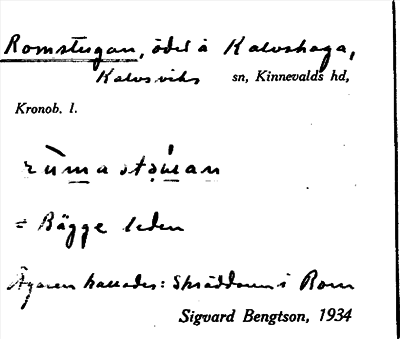 Romstugan, öde å Kalvshaga,
Kalvsviks sn, Kinnevalds hd,
Kronob. l.
= Bägge leden
Ägaren kallades: Skräddaren i Rom
Sigvard Bengtson, 1934